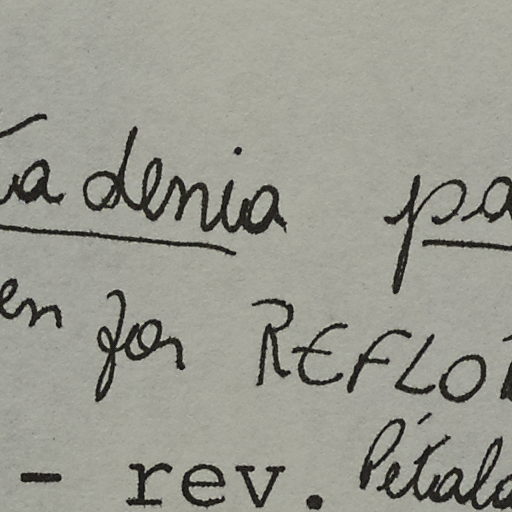 tadenia pa
en for REFLO
- rev. Pétala